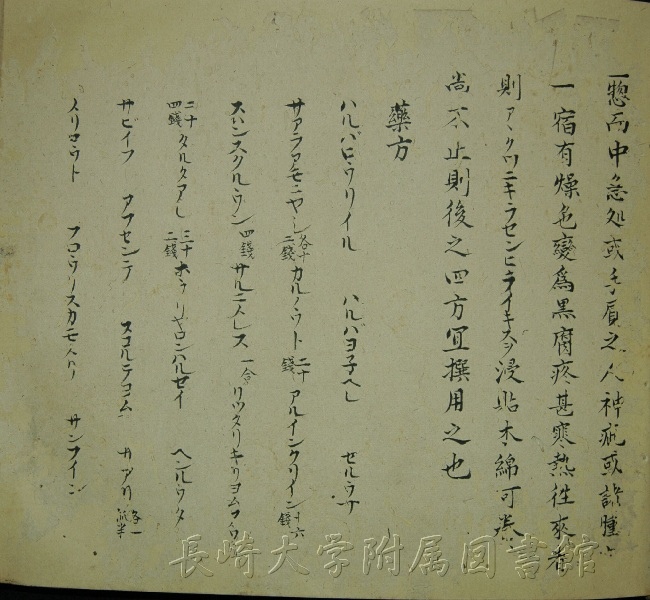 一惣而中急処或手負之人神疵或諸腫
一宿有燥色變爲黒腐疼甚寒熱往来者
則アヽクワニキラセンヒライキスヲ浸貼木綿可巻
尚不止則後之四方宜撰用之也
藥方
ハルバヒウリイル ハルバヨ子ヘレ セルウナ
サアラアモニヤシ各十二錢 カルノウト二十錢 アルインクリイン十六錢
スハンスクルウン四錢 サルニヘレス一合 リウタリキリヨム
二十四錢 タルタアレ三十二錢 ホラリヤロンハルセイ ヘンルウタ
サビイフ アフセンテ スコルテコム カアリ各一
ノリセウト フロウリスカモヘリ サンフイン
長崎大学附属図書館